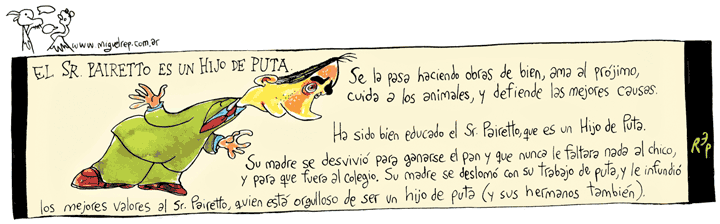 www.miguelrep.com.ar
EL SR. PAIRETTO ES UN HIJO DE PUTA.
Se la pasa haciendo obras de bien, ama al prójimo,
cuida a los animales, y defiende las mejores causas.
Ha sido bien educado el Sr. Pairetto, que es un Hijo de Puta.
Su madre se desvivió para ganarse el pan y que nunca le faltara nada al chico,
y para que fuera al colegio. Su madre se deslomó con su trabajo de puta, y le infundió
los mejores valores al Sr. Pairetto, quien está orgulloso de ser un hijo de puta (y sus hermanos también).
REP